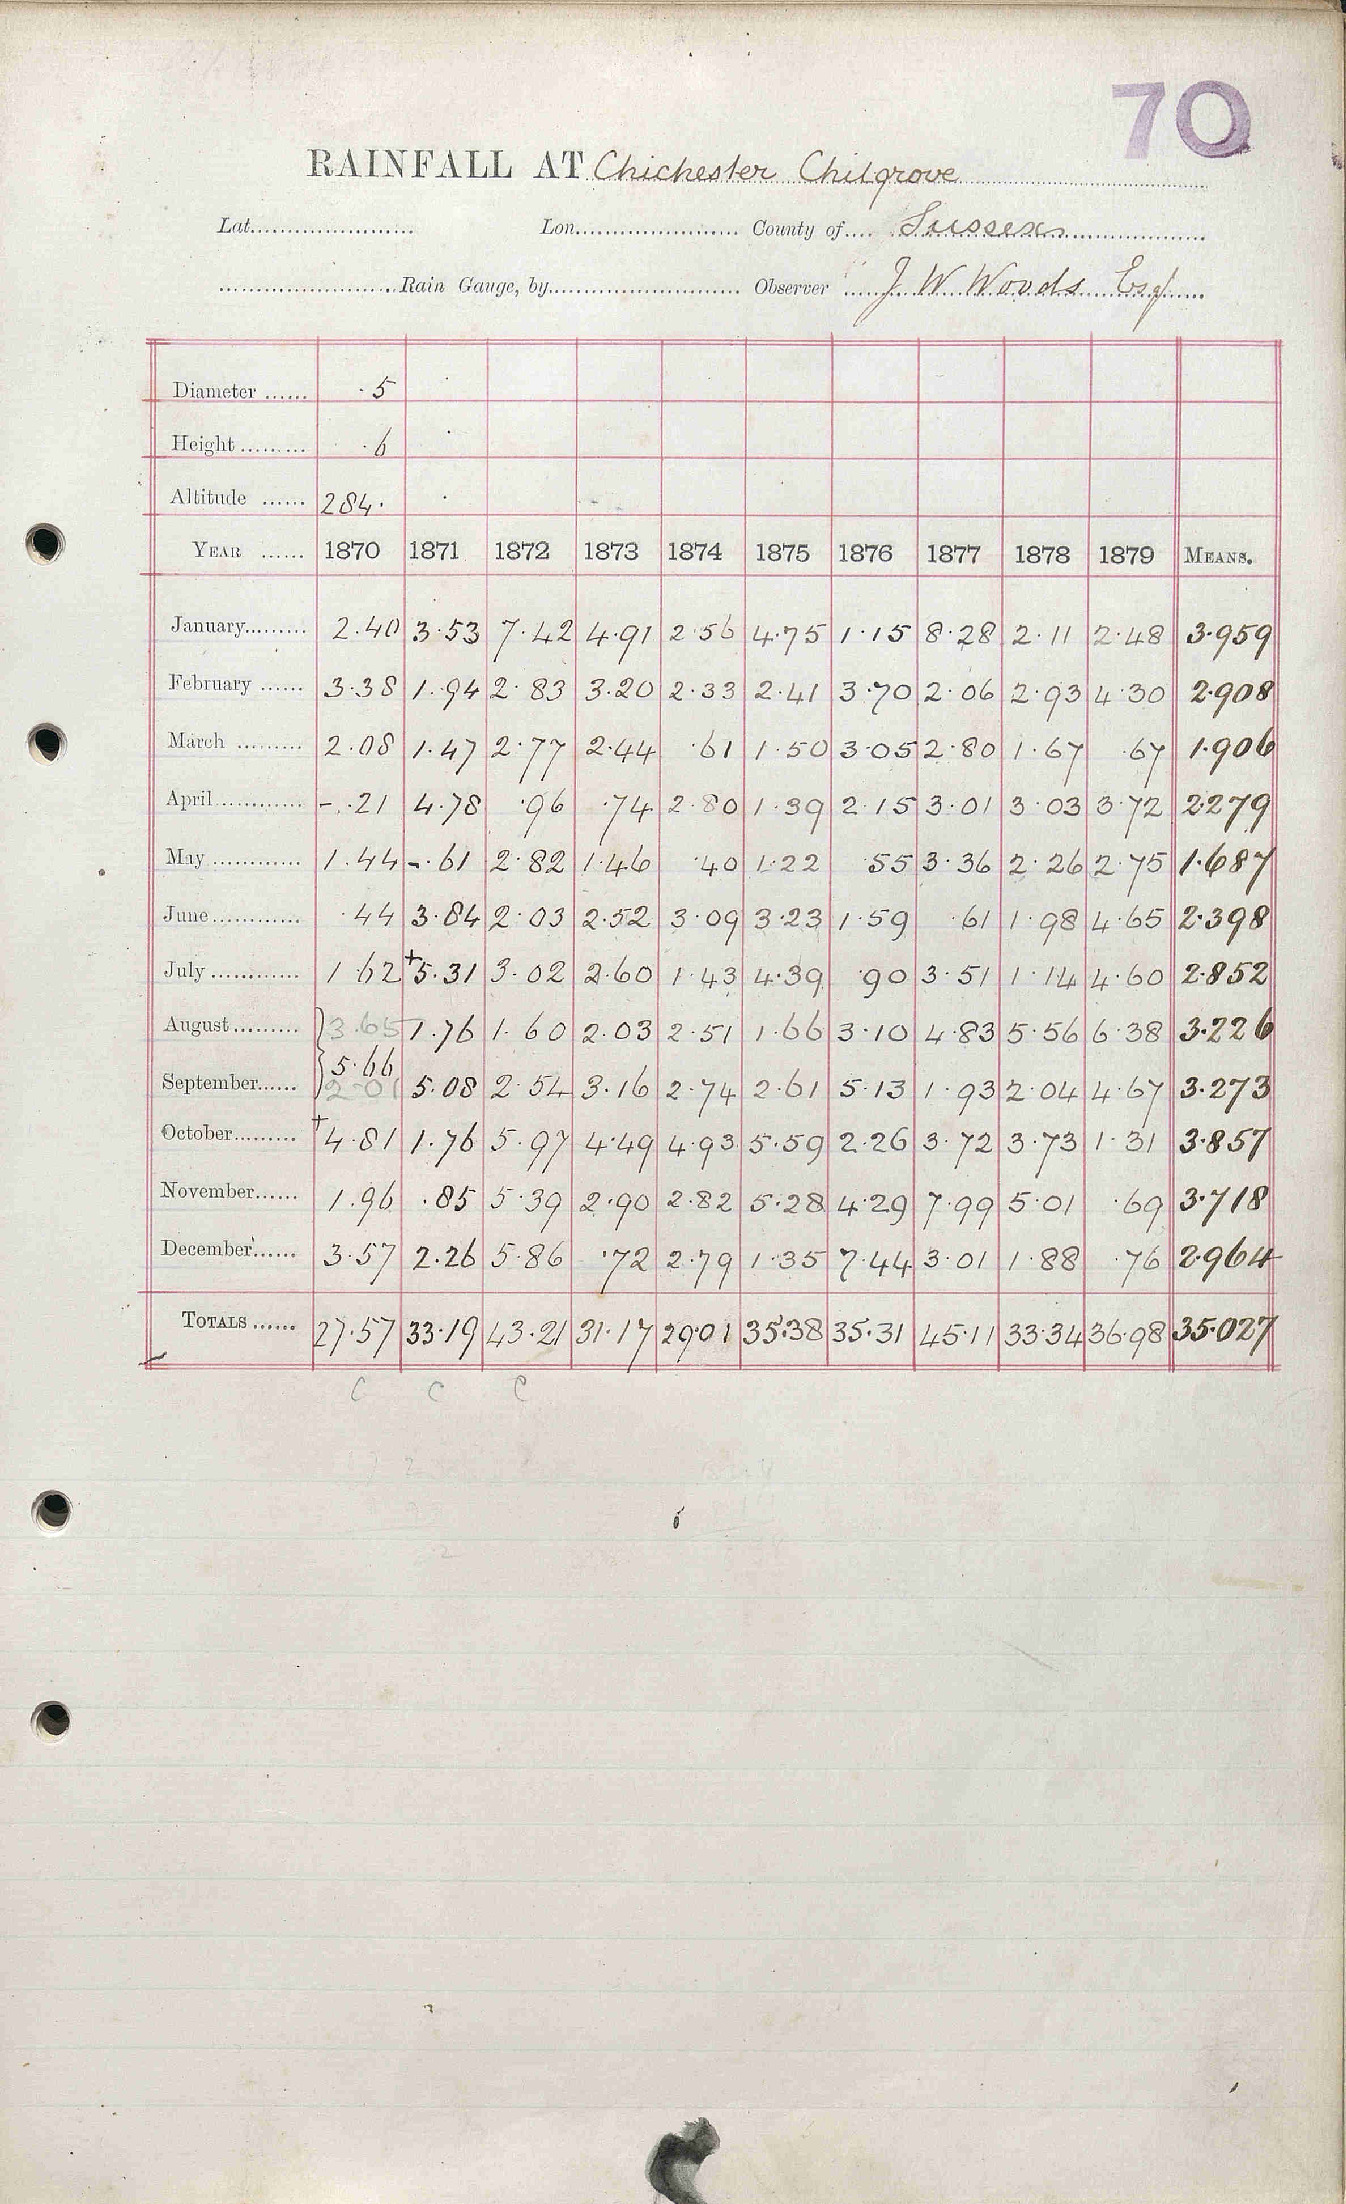 70
RAINFALL AT Chichester Chilgrove
Lat. Lon. County of Sussex
Rain Gauge, by Observer J W Woods Esq
Diameter ...... ·5
Height ......... ·6
Altitude ...... 284·
YEAR ...... 1870 1871 1872 1873 1874 1875 1876 1877 1878 1879 MEANS.
January......... 2.40 3.53 7.42 4.91 2.56 4.75 1.15 8.28 2.11 2.48 3.959
February ...... 3.38 1.94 2.83 3.20 2.33 2.41 3.70 2.06 2.93 4.30 2.908
March ......... 2.08 1.47 2.77 2.44 .61 1.50 3.05 2.80 1.67 .67 1.906
April............ -.21 4.78 .96 .74 2.80 1.39 2.15 3.01 3.03 3.72 2.279
May ............ 1.44 -.61 2.82 1.46 .40 1.22 .55 3.36 2.26 2.75 1.687
June............ .44 3.84 2.03 2.52 3.09 3.23 1.59 .61 1.98 4.65 2.398
July ............ 1.62 +5.31 3.02 2.60 1.43 4.39 .90 3.51 1.14 4.60 2.852
August ......... 3.65 1.76 1.60 2.03 2.51 1.66 3.10 4.83 5.56 6.38 3.226
5.66
September...... 2.01 5.08 2.54 3.16 2.74 2.61 5.13 1.93 2.04 4.67 3.273
October......... +4.81 1.76 5.97 4.49 4.93 5.59 2.26 3.72 3.73 1.31 3.857
November...... 1.96 .85 5.39 2.90 2.82 5.28 4.29 7.99 5.01 .69 3.718
December...... 3.57 2.26 5.86 .72 2.79 1.35 7.44 3.01 1.88 .76 2.964
TOTALS ...... 27.57 33.19 43.21 31.17 29.01 35.38 35.31 45.11 33.34 36.98 35.027
C C C